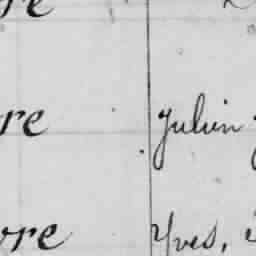 re
re Julien
vre Yves,